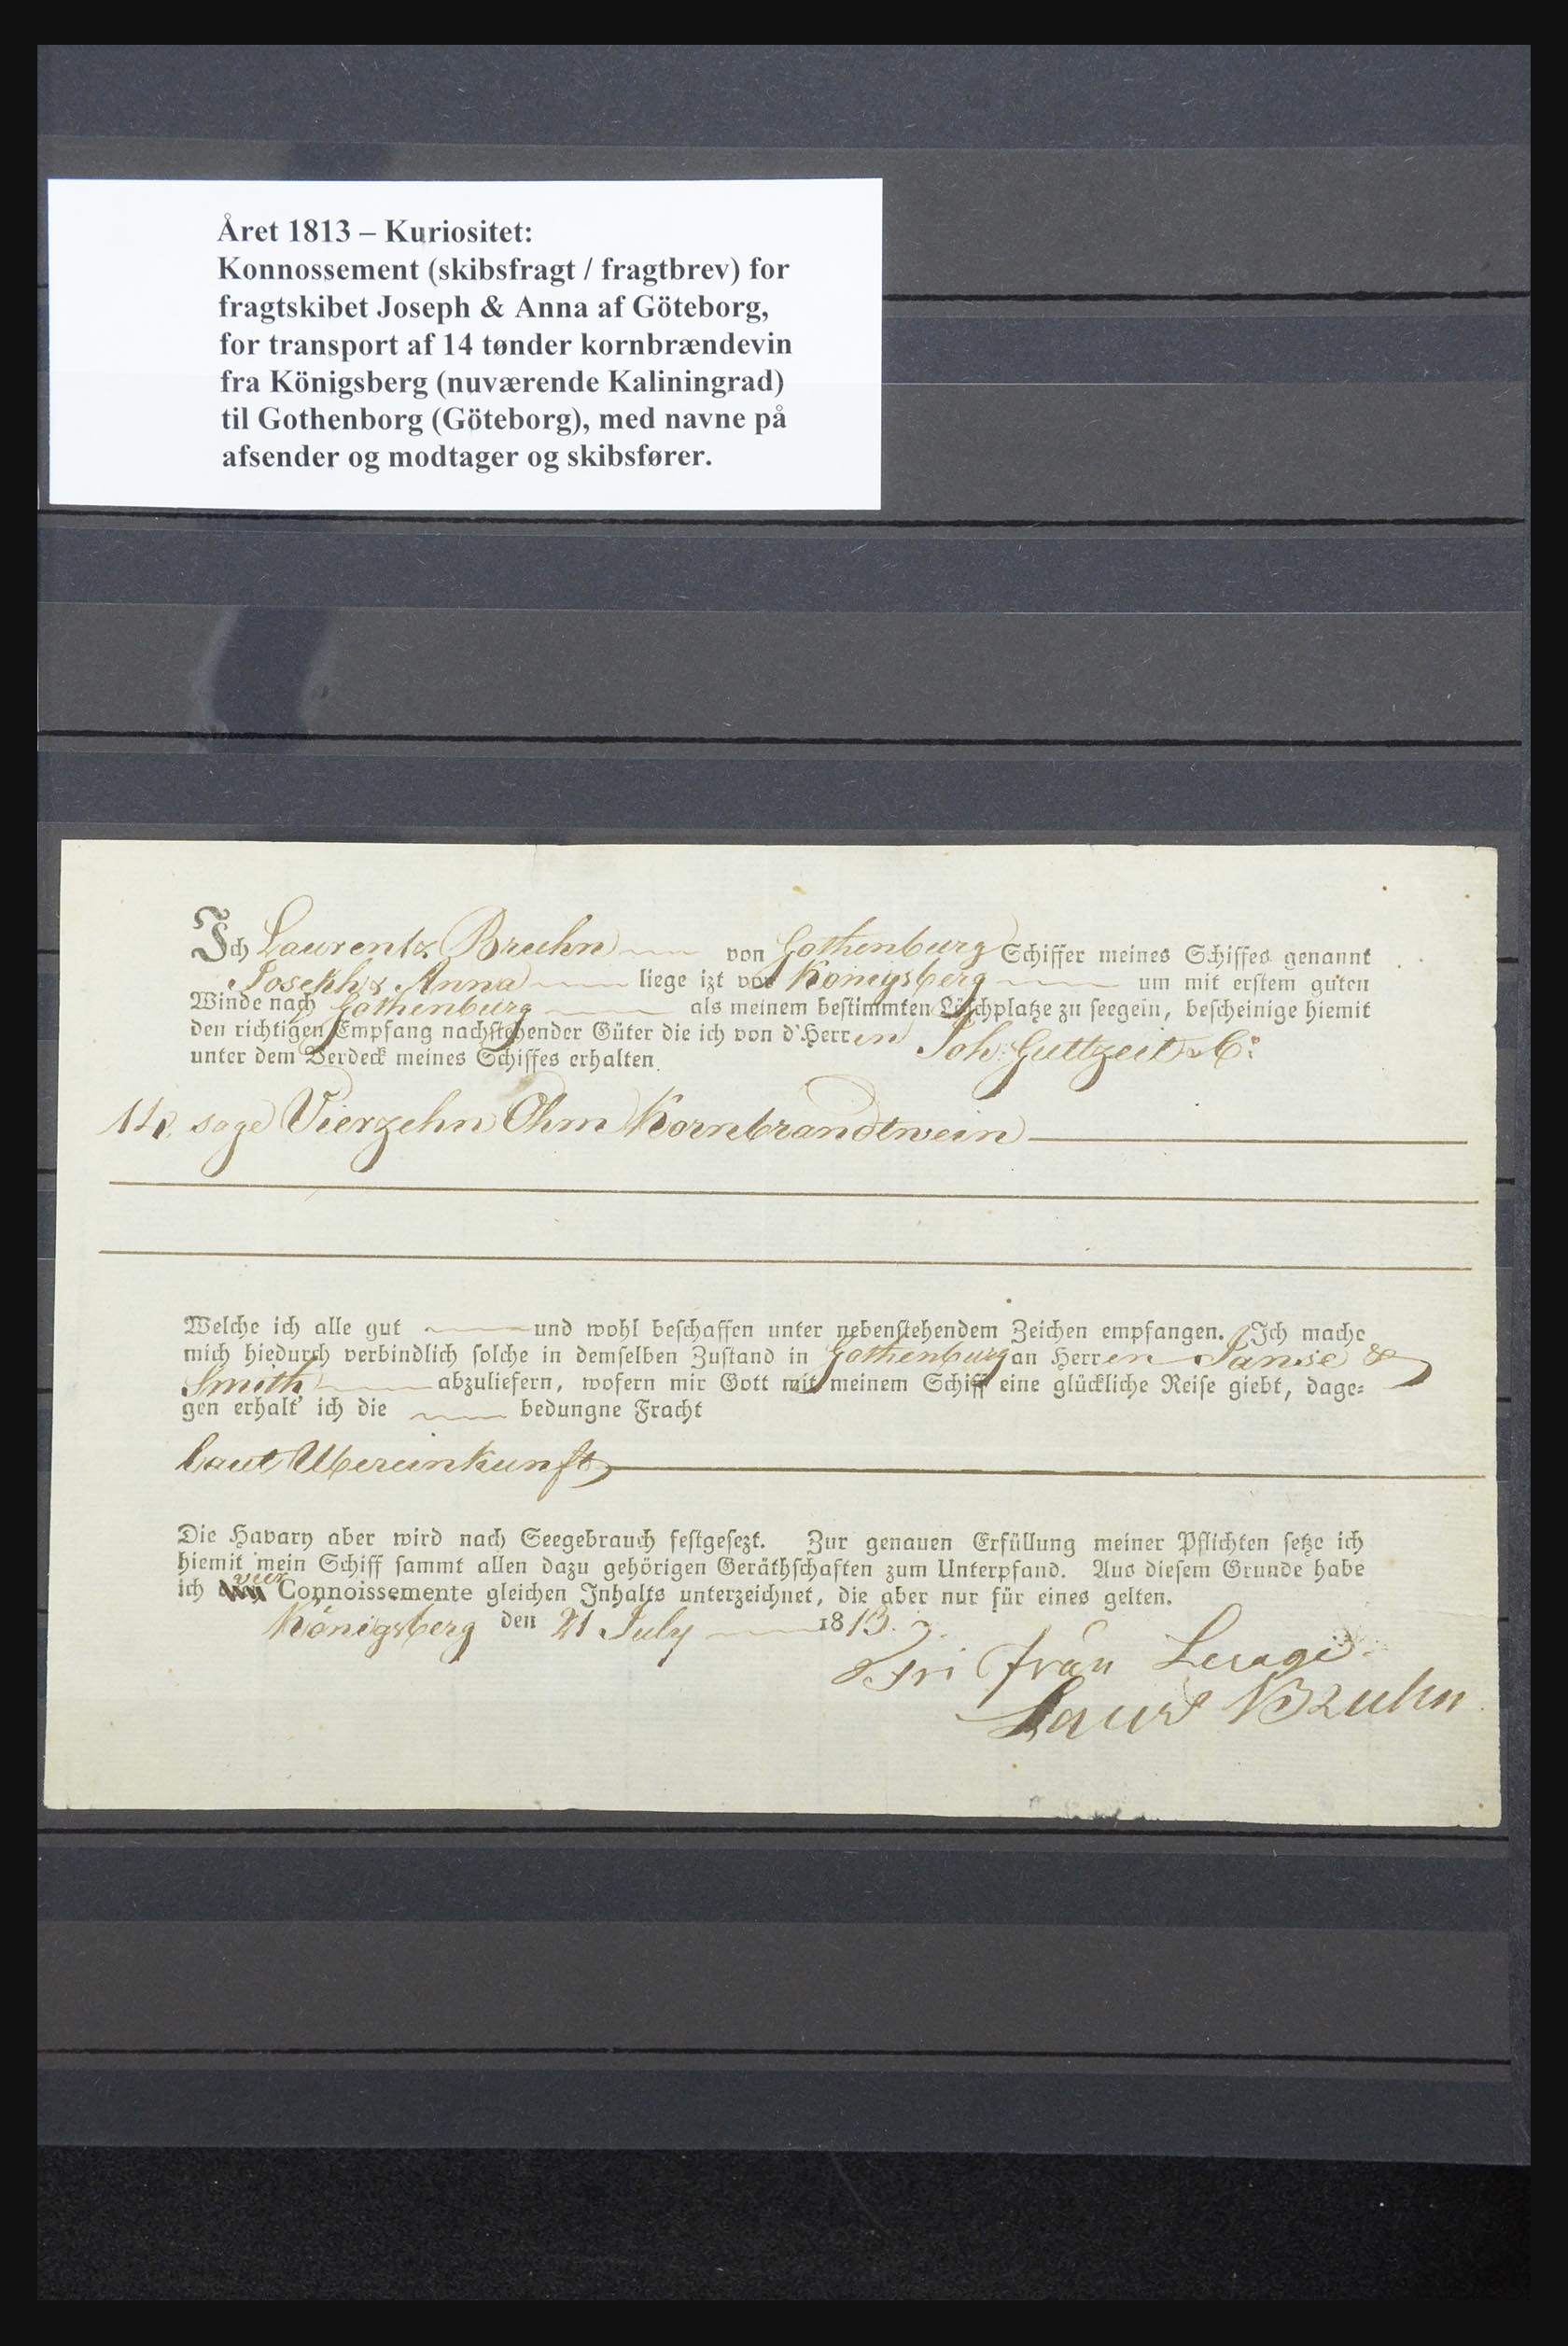 Året 1813 – Kuriositet:
Konnossement (skibsfragt / fragtbrev) for
fragtskibet Joseph & Anna af Göteborg,
for transport af 14 tønder kornbrændevin
fra Königsberg (nuværende Kaliningrad)
til Gothenborg (Göteborg), med navne på
afsender og modtager og skibsfører.
Ich Laurentz Bruhn von Gothenburg Schiffer meines Schiffes genannt
Joseph & Anna liege izt vor Königsberg um mit erstem guten
Winde nach Gothenburg als meinem bestimmten Löschplatze zu seegeln, bescheinige hiemit
den richtigen Empfang nachstehender Güter die ich von d' Herren Joh: Guttzeit & Co:
unter dem Verdeck meines Schiffes erhalten.
14. sage Vierzehn Ohm Kornbrandtwein
Welche ich alle gut und wohl beschaffen unter nebenstehendem Zeichen empfangen. Ich mache
mich hiedurch verbindlich solche in demselben Zustand in Gothenburg an Herren &
Smith abzuliefern, wofern mir Gott mit meinem Schiff eine glückliche Reise giebt, dage=
gen erhalt' ich die bedungne Fracht
laut Uebereinkunft
Die Havary aber wird nach Seegebrauch festgesezt. Zur genauen Erfüllung meiner Pflichten setze ich
hiemit mein Schiff sammt allen dazu gehörigen Geräthschaften zum Unterpfand. Aus diesem Grunde habe
ich vier Connoissemente gleichen Inhalts unterzeichnet, die aber nur für eines gelten.
Königsberg den 21 July 1813.
Fri från Lecage
Laurs Bruhn